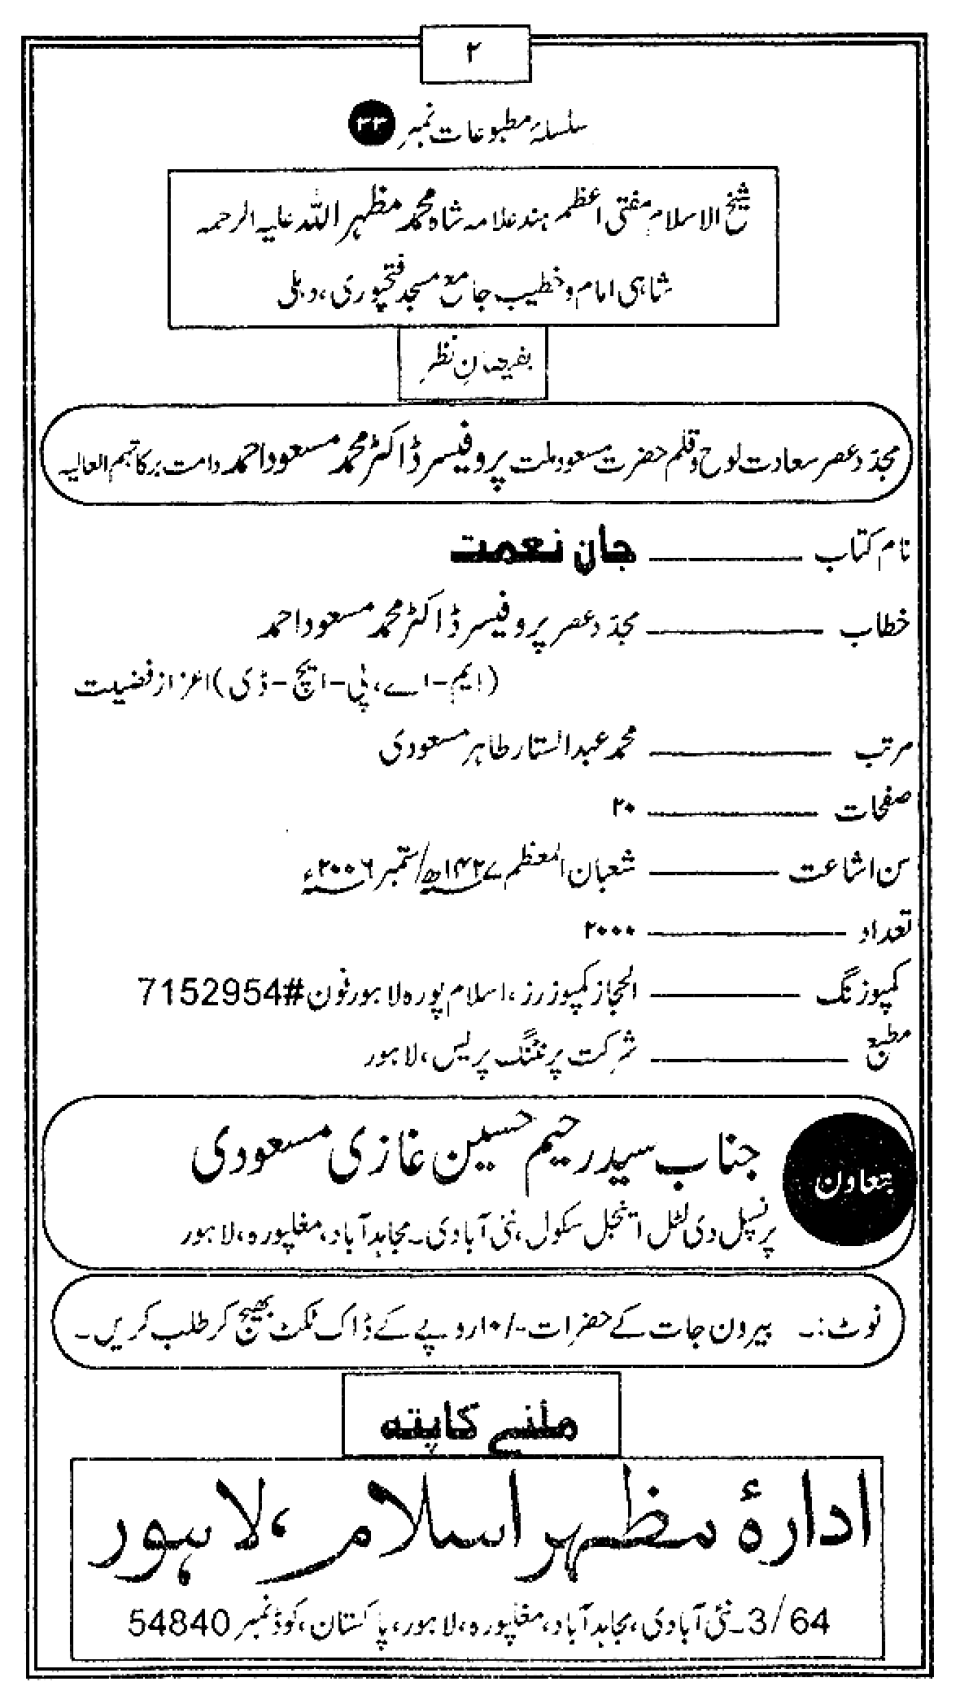 ۲
سلسلۂ مطبوعات نمبر ۳۳
شیخ الاسلام مفتی اعظم ہند علامہ شاہ محمد مظہر اللہ علیہ الرحمہ
شاہی امام و خطیب جامع مسجد فتحپوری، دہلی
بفیضانِ نظر
مجدّد عصر سعادت لوح و قلم حضرت مسعود ملت پروفیسر ڈاکٹر محمد مسعود احمد دامت برکاتہم العالیہ
نام کتاب ــــــــــــ جانِ نعمت
خطاب ــــــــــــ مجدّد عصر پروفیسر ڈاکٹر محمد مسعود احمد
(ایم-اے، پی-ایچ-ڈی) اعزاز فضیلت
مرتب ــــــــــــ محمد عبدالستار طاہر مسعودی
صفحات ــــــــــــ ۲۰
سن اشاعت ــــــــــــ شعبان المعظم ۱۴۲۷ھ/ستمبر ۲۰۰۶ء
تعداد ــــــــــــ ۲۰۰۰
کمپوزنگ ــــــــــــ الحجاز کمپوزرز، اسلام پورہ لاہور فون #7152954
مطبع ــــــــــــ شرکت پرنٹنگ پریس، لاہور
بتعاون
جناب سید رحیم حسین غازی مسعودی
پرنسپل دی لٹل اینجل سکول، نئی آبادی۔ مجاہد آباد، مغلپورہ، لاہور
نوٹ:۔ بیرون جات کے حضرات -/۱۰ روپے کے ڈاک ٹکٹ بھیج کر طلب کریں۔
ملنے کا پتہ
ادارۂ مظہر اسلام، لاہور
3/64۔ نئی آبادی، مجاہد آباد، مغلپورہ، لاہور، پاکستان، کوڈ نمبر 54840